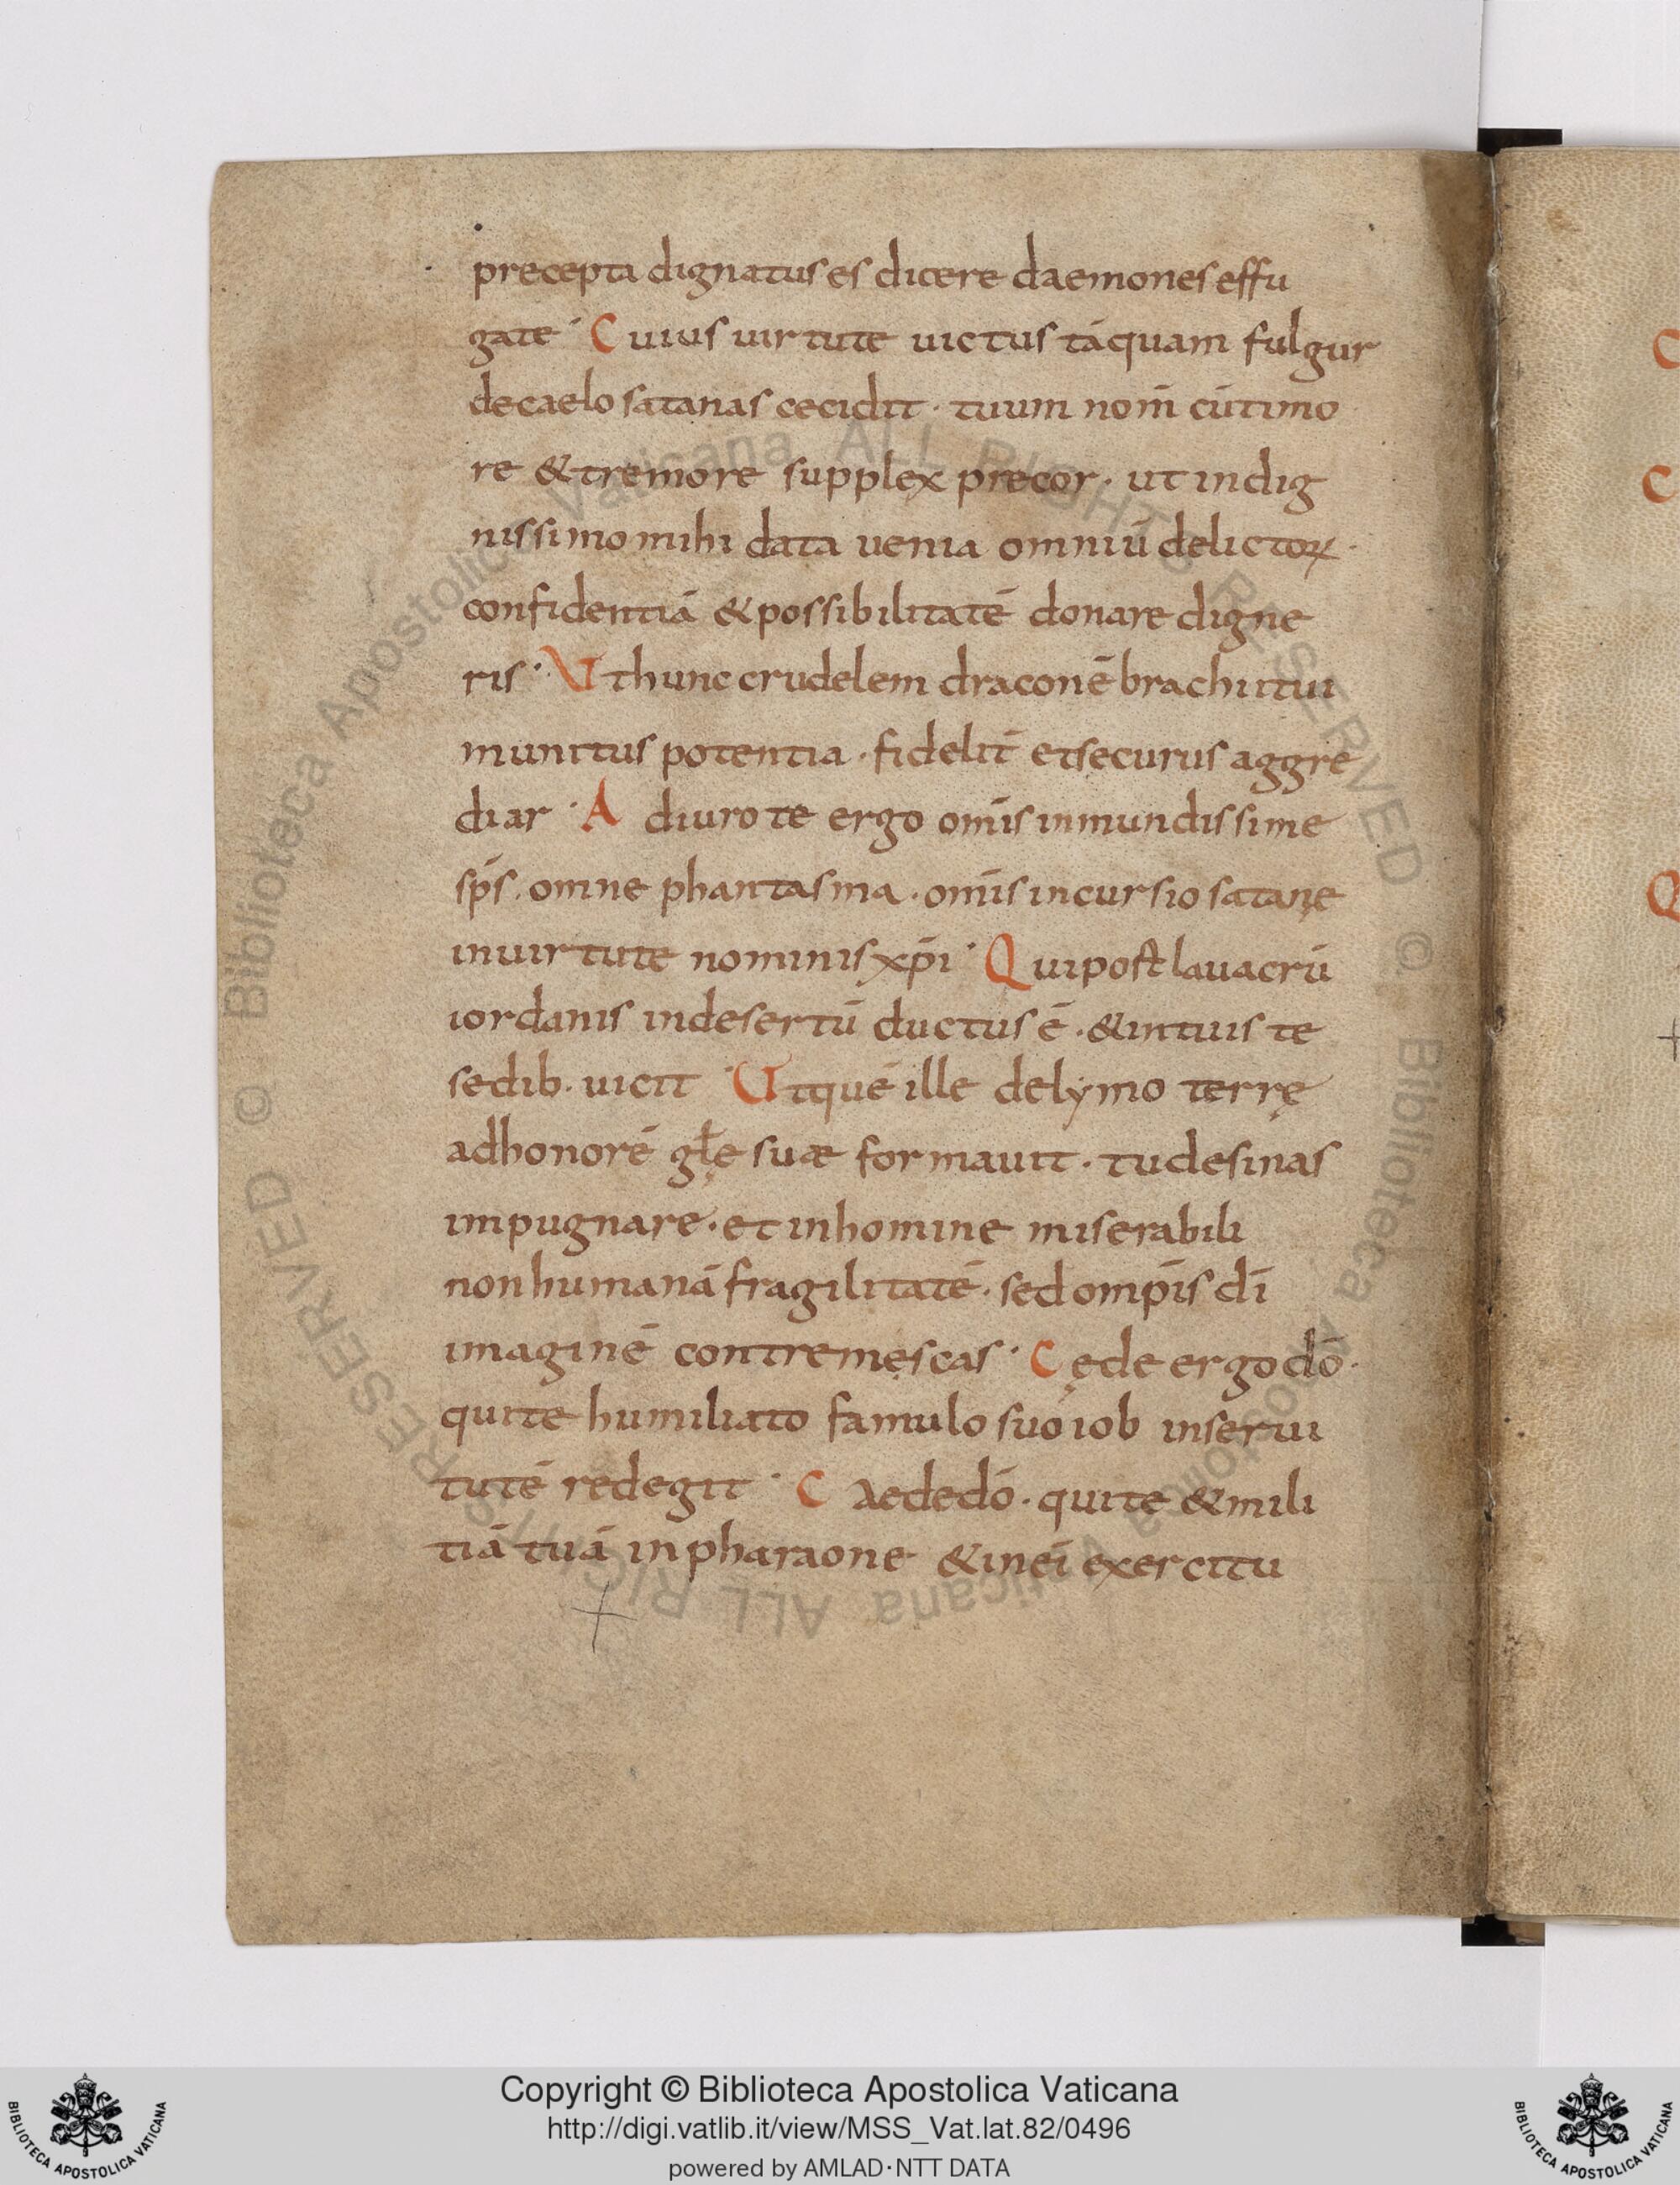 precepta dignatus es dicere daemones effu
gate · Cuius uirtute uictus tāquam fulgur
de caelo satanas cecidit · tuum nom̄ cū timo
re & tremore supplex precor · ut indig
nissimo mihi data uenia omniū delictoꝝ ·
confidentiā & possibilitatē donare digne
ris · Ut hunc crudelem draconē brachii tui
munitus potentia · fidelit̄ et securus aggre
diar · Adiuro te ergo om̄is inmundissime
sp̄s · omne phantasma · om̄is incursio satanę
in uirtute nominis xp̄i · Qui post lauacrū
iordanis in desertū ductus ē · & in tuis te
sedib · uicit · Ut quē ille de lymo terrę
ad honorē gl̄ę suæ formauit · tu desinas
impugnare · et in homine miserabili
non humanā fragilitatē · sed omp̄is dī
imaginē contremęscas · Cęde ergo dō ·
qui te humiliato famulo suo iob in serui
tutē redegit · Caede dō · qui te & mili
tiā tuā in pharaone & in ei exercitu
Copyright © Biblioteca Apostolica Vaticana
http://digi.vatlib.it/view/MSS_Vat.lat.82/0496
powered by AMLAD·NTT DATA
BIBLIOTECA APOSTOLICA VATICANA
BIBLIOTECA APOSTOLICA VATICANA
© Biblioteca Apostolica Vaticana ALL RIGHTS RESERVED © Biblioteca Apostolica Vaticana ALL RIGHTS RESERVED
C
C
Q